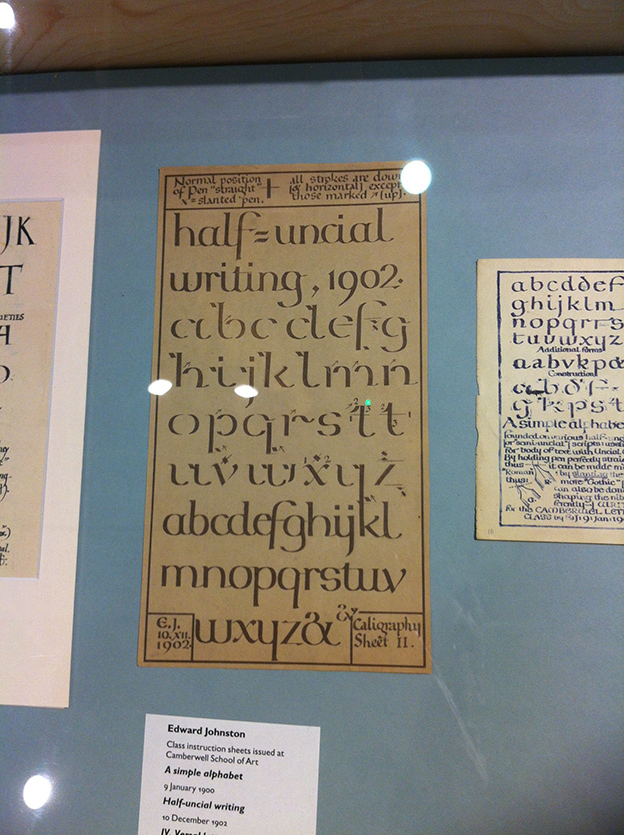 JK
T
Normal position
of Pen "straight"
= slanted pen.
all strokes are down
[or horizontal] except
those marked ↗ [up].
half=uncial
writing, 1902.
a b c d e f g
h i j k l m n
o p q r s t t
u v w x y z
abcdefghijkl
mnopqrstuv
wxyz& &
E.J.
10.XII.
1902.
Caligraphy
Sheet II.
abcddef
ghijklm
nopqrrs
tuvwxyz
Additional forms
aabvkp
Construction
a b d f
g k p s t
A simple alphabe
founded on various half-un
for body of text with Uncial
By holding pen perfectly
thus it can be made
by slanting the
thus: more "Gothic"
can also be don
shaping the nib
for the CAMBERWEL LETT
CLASS by EJ. 9. Jan. 190
Edward Johnston
Class instruction sheets issued at
Camberwell School of Art
A simple alphabet
9 January 1900
Half-uncial writing
10 December 1902